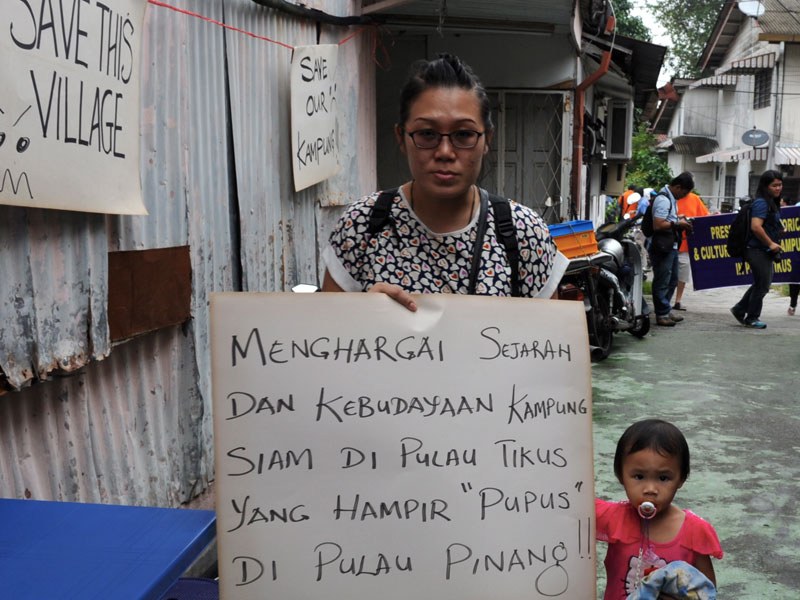 SAVE THIS
VILLAGE
SAVE
OUR
KAMPUNG!!
MENGHARGAI SEJARAH
DAN KEBUDAYAAN KAMPUNG
SIAM DI PULAU TIKUS
YANG HAMPIR "PUPUS"
DI PULAU PINANG!!
& CULTUR
TIKUS